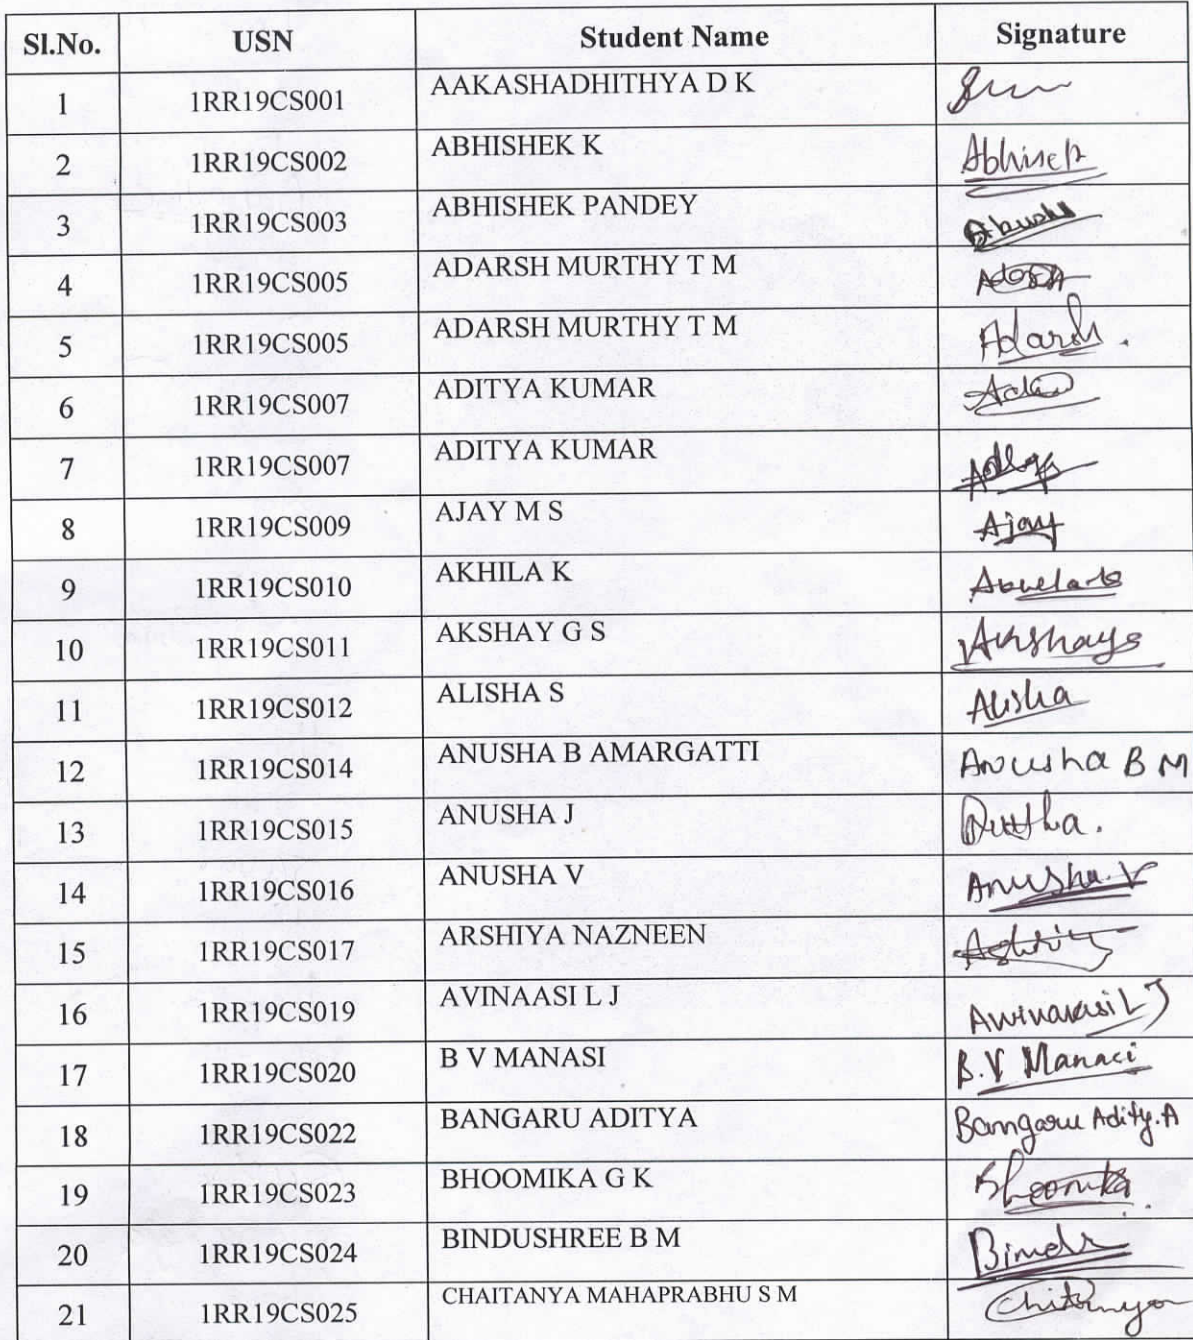 Sl.No. USN Student Name Signature
1 1RR19CS001 AAKASHADHITHYA D K
2 1RR19CS002 ABHISHEK K Abhishek
3 1RR19CS003 ABHISHEK PANDEY
4 1RR19CS005 ADARSH MURTHY T M
5 1RR19CS005 ADARSH MURTHY T M Adarsh.
6 1RR19CS007 ADITYA KUMAR
7 1RR19CS007 ADITYA KUMAR
8 1RR19CS009 AJAY M S Ajay
9 1RR19CS010 AKHILA K
10 1RR19CS011 AKSHAY G S Akshay
11 1RR19CS012 ALISHA S Alisha
12 1RR19CS014 ANUSHA B AMARGATTI Anusha B M
13 1RR19CS015 ANUSHA J
14 1RR19CS016 ANUSHA V Anusha.V
15 1RR19CS017 ARSHIYA NAZNEEN
16 1RR19CS019 AVINAASI L J
17 1RR19CS020 B V MANASI B.V Manaci
18 1RR19CS022 BANGARU ADITYA Bangaru Adity.A
19 1RR19CS023 BHOOMIKA G K Bhoomika
20 1RR19CS024 BINDUSHREE B M Bindu
21 1RR19CS025 CHAITANYA MAHAPRABHU S M